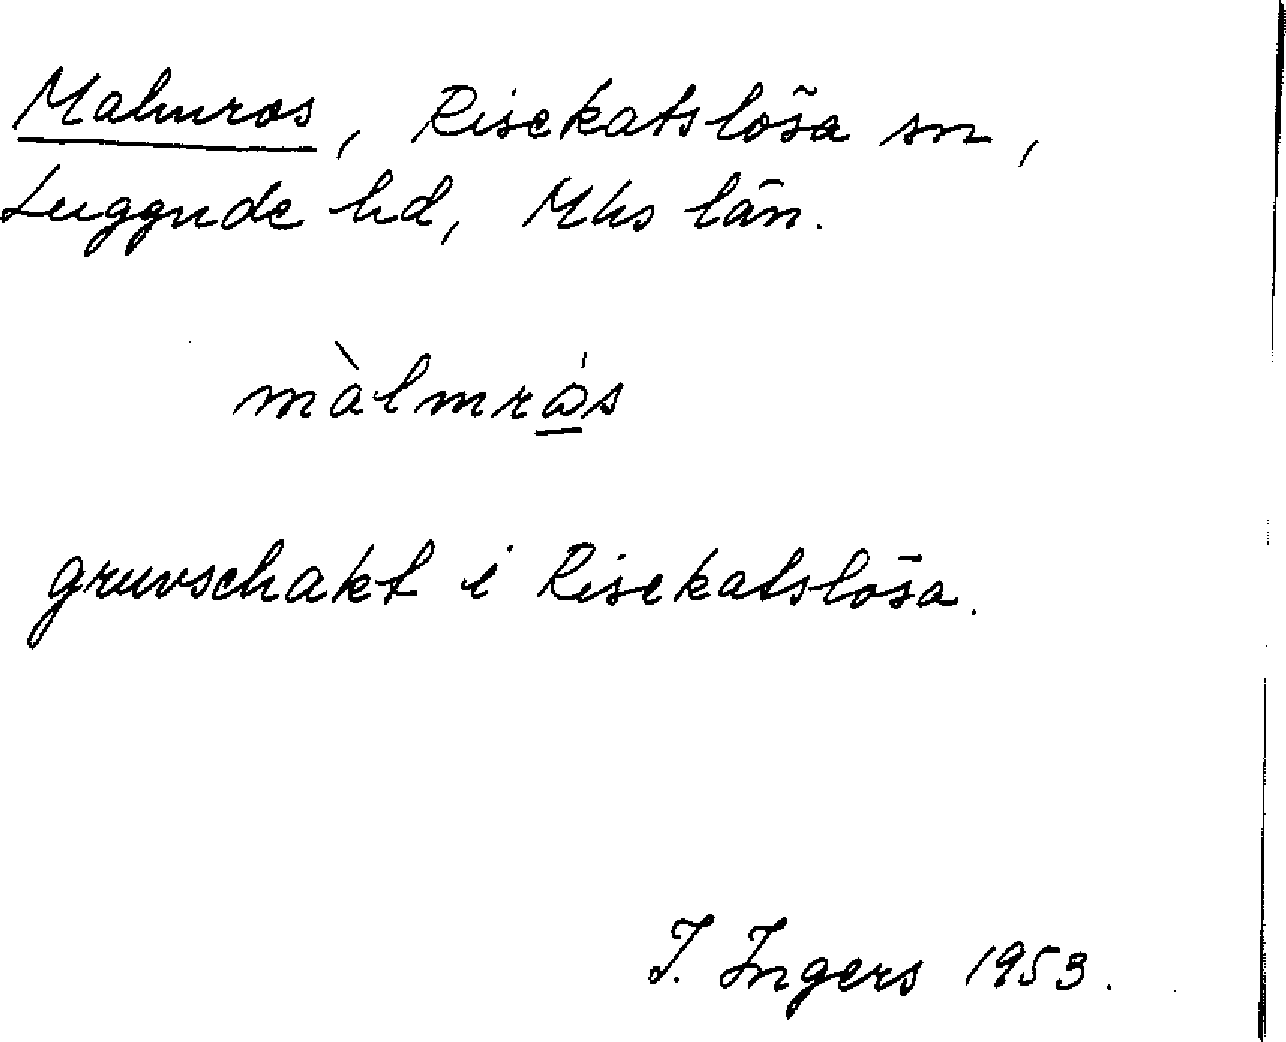 Malmros, Risekatslösa sn,
Luggude hd, Mhs län.
màlmrɷ́s
gruvschakt i Risekatslösa.
I. Ingers 1953.